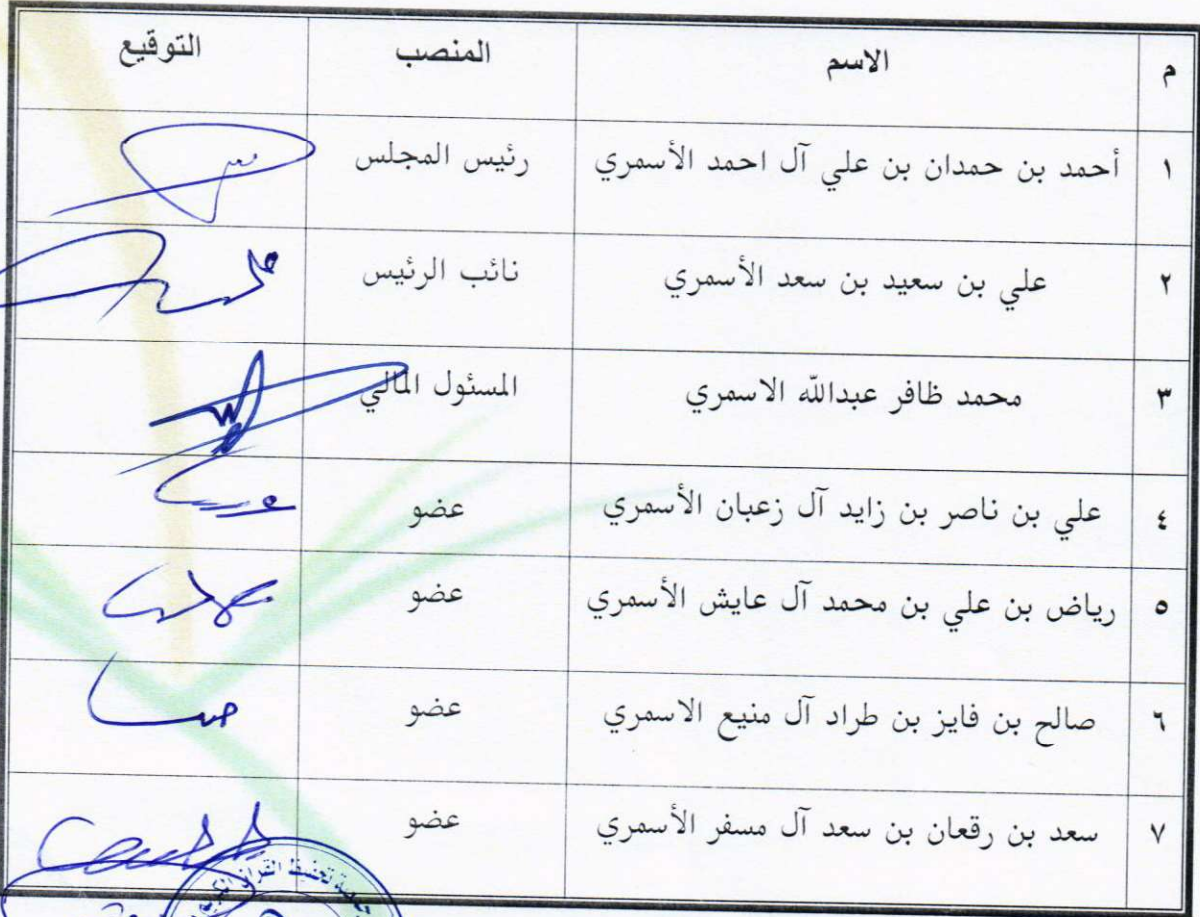 م الاسم المنصب التوقيع
١ أحمد بن حمدان بن علي آل احمد الأسمري رئيس المجلس
٢ علي بن سعيد بن سعد الأسمري نائب الرئيس
٣ محمد ظافر عبدالله الاسمري المسئول المالي
٤ علي بن ناصر بن زايد آل زعبان الأسمري عضو
٥ رياض بن علي بن محمد آل عايش الأسمري عضو
٦ صالح بن فايز بن طراد آل منيع الاسمري عضو
٧ سعد بن رقعان بن سعد آل مسفر الأسمري عضو
تحفيظ القرآن